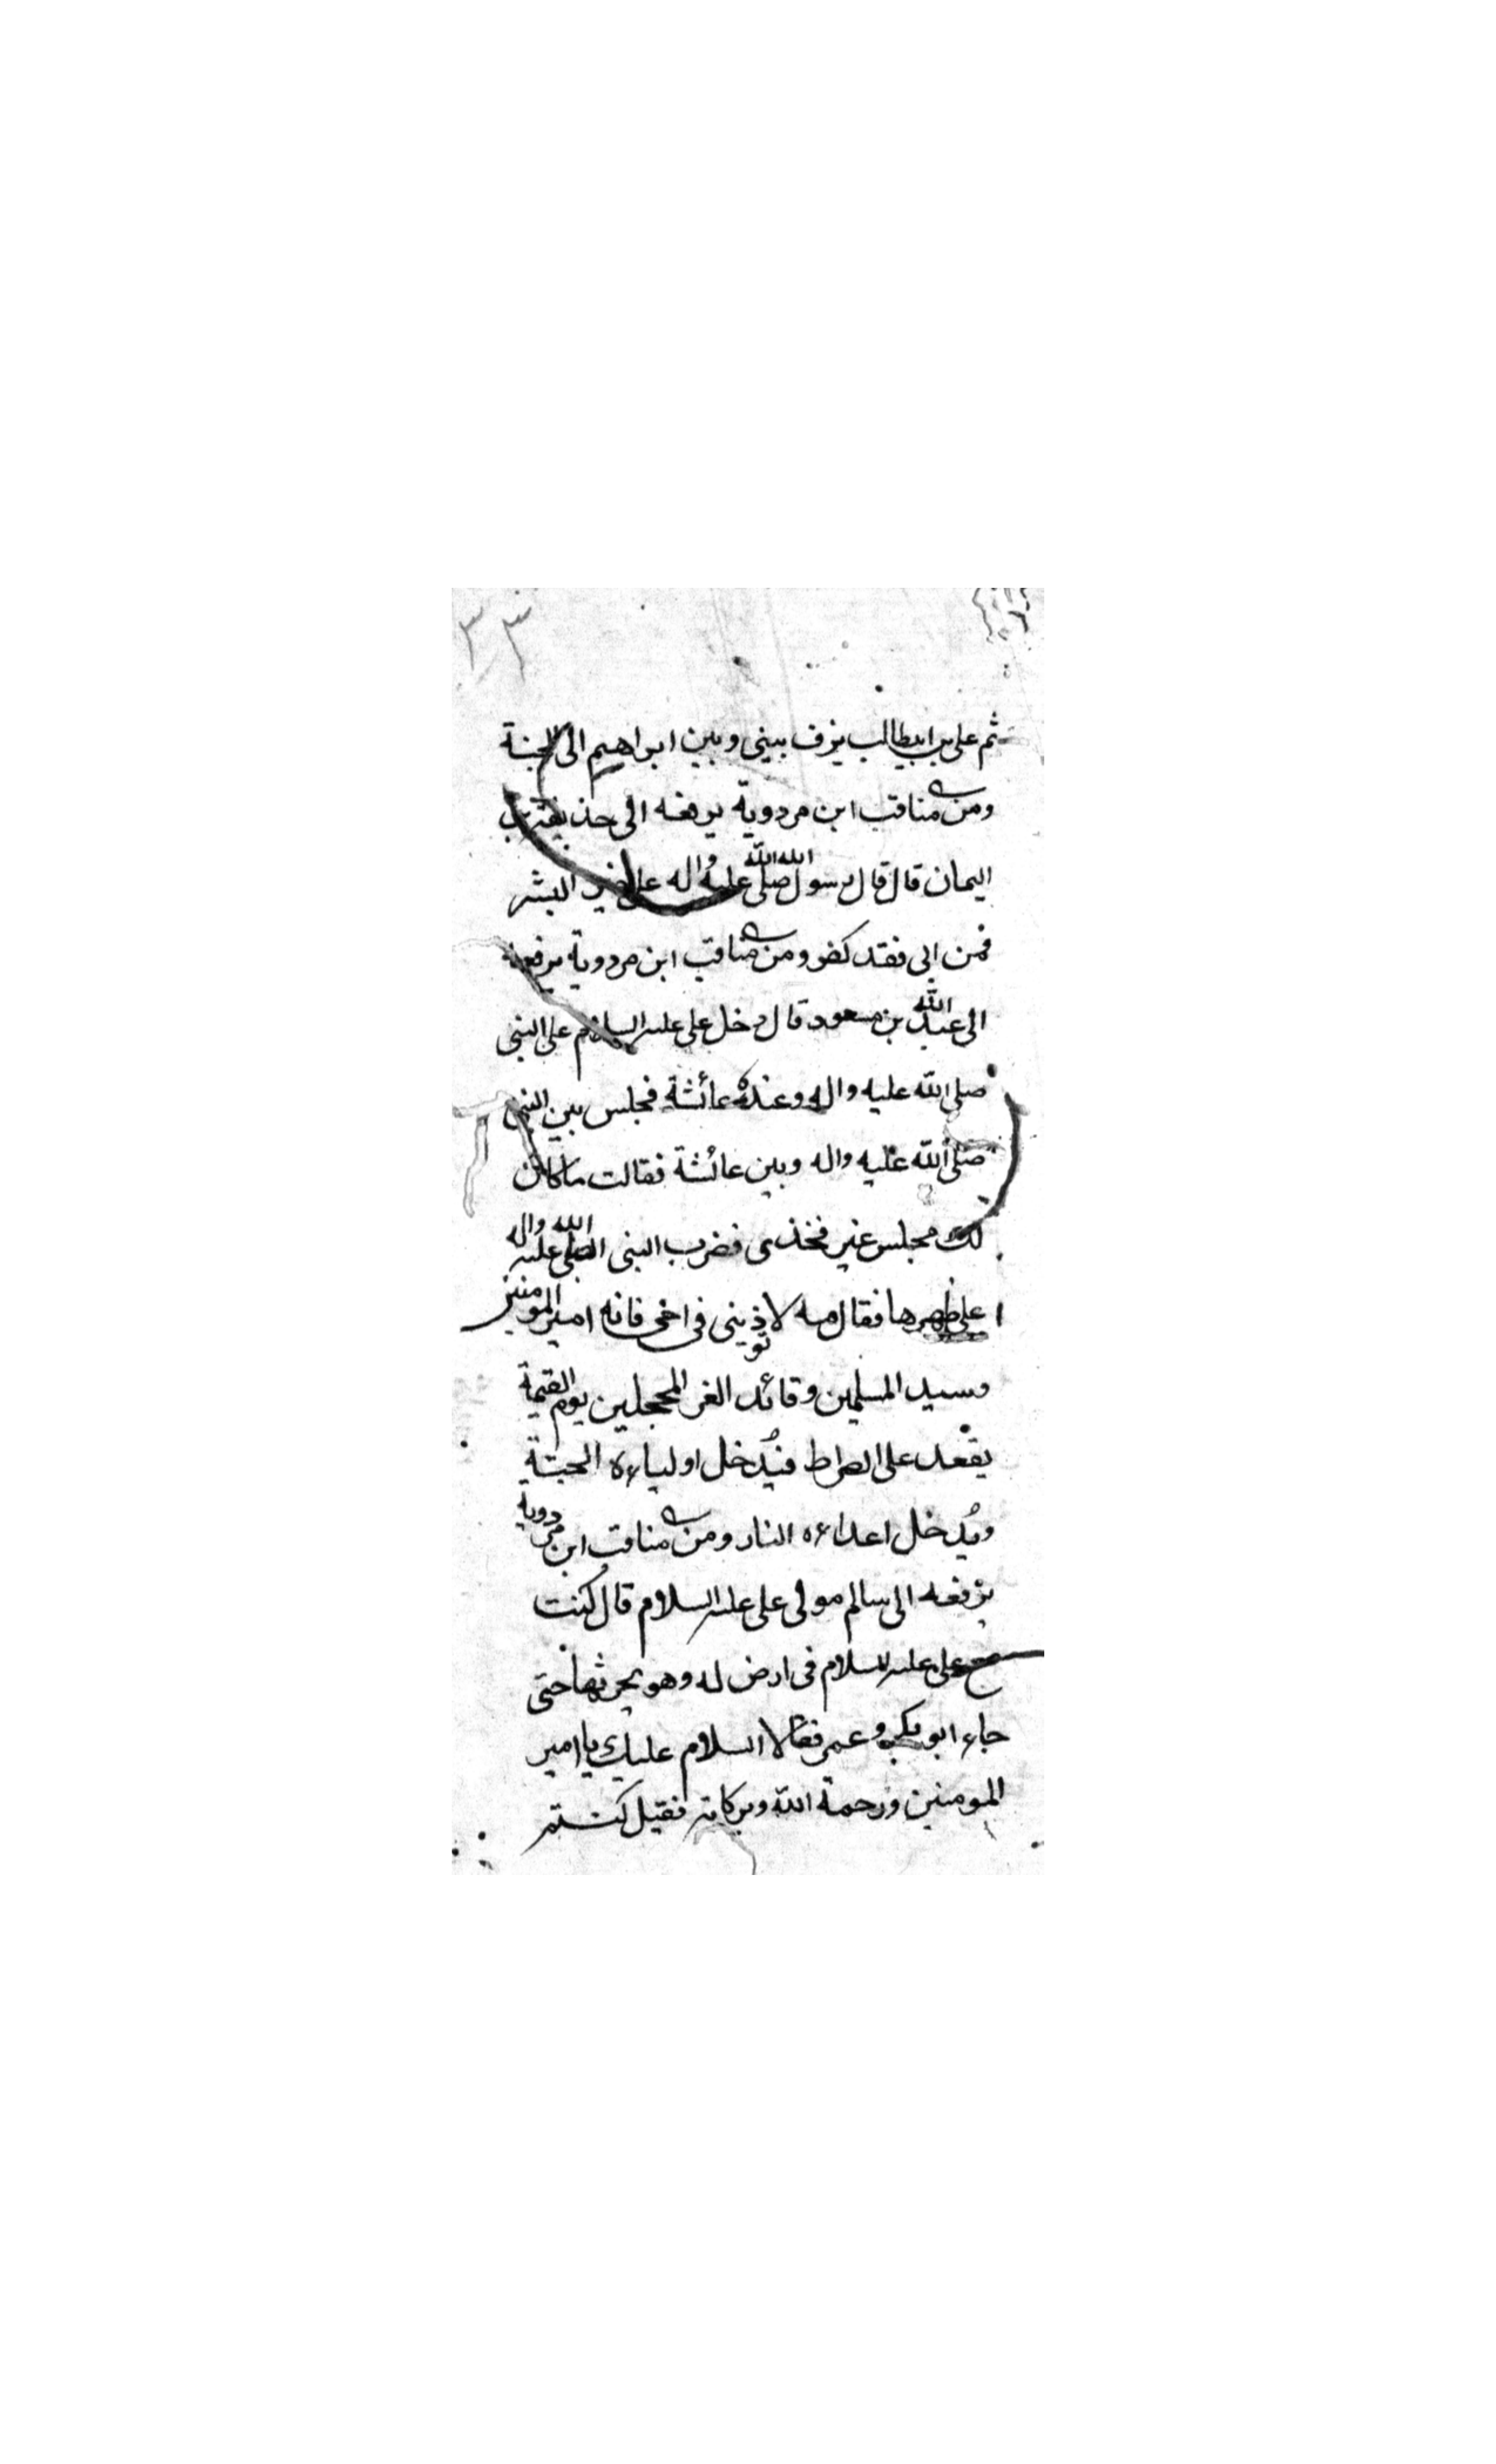 ٣٣
ثم على بن ابيطالب يزف بينى وبين ابراهيم الى الجنة
ومن مناقب ابن مردوية يرفعه الى حذيفة بن
اليمان قال قال رسول الله صلى الله عليه واله على خير البشر
فمن ابى فقد كفر ومن مناقب ابن مردوية يرفعه
الى عبد الله بن مسعود قال دخل على عليه السلام على النبى
صلى الله عليه واله وعنده عائشة فجلس بين النبى
صلى الله عليه واله وبين عائشة فقالت ماكان
لك مجلس غير فخذى فضرب النبى صلى الله عليه واله
على ظهرها فقال مه لا توذينى فى اخى فانه امير المومنين
وسيد المسلمين وقائد الغر المحجلين يوم القيمة
يقعد على الصراط فيُدخل اولياءه الجنة
ويُدخل اعداءه النار ومن مناقب ابن مردوية
يرفعه الى سالم مولى على عليه السلام قال كنت
مع على عليه السلام فى ارض له وهو يحرثها حتى
جاء ابو بكر وعمر فقالا السلام عليك يا امير
المومنين ورحمة الله وبركاته فقيل كنتم